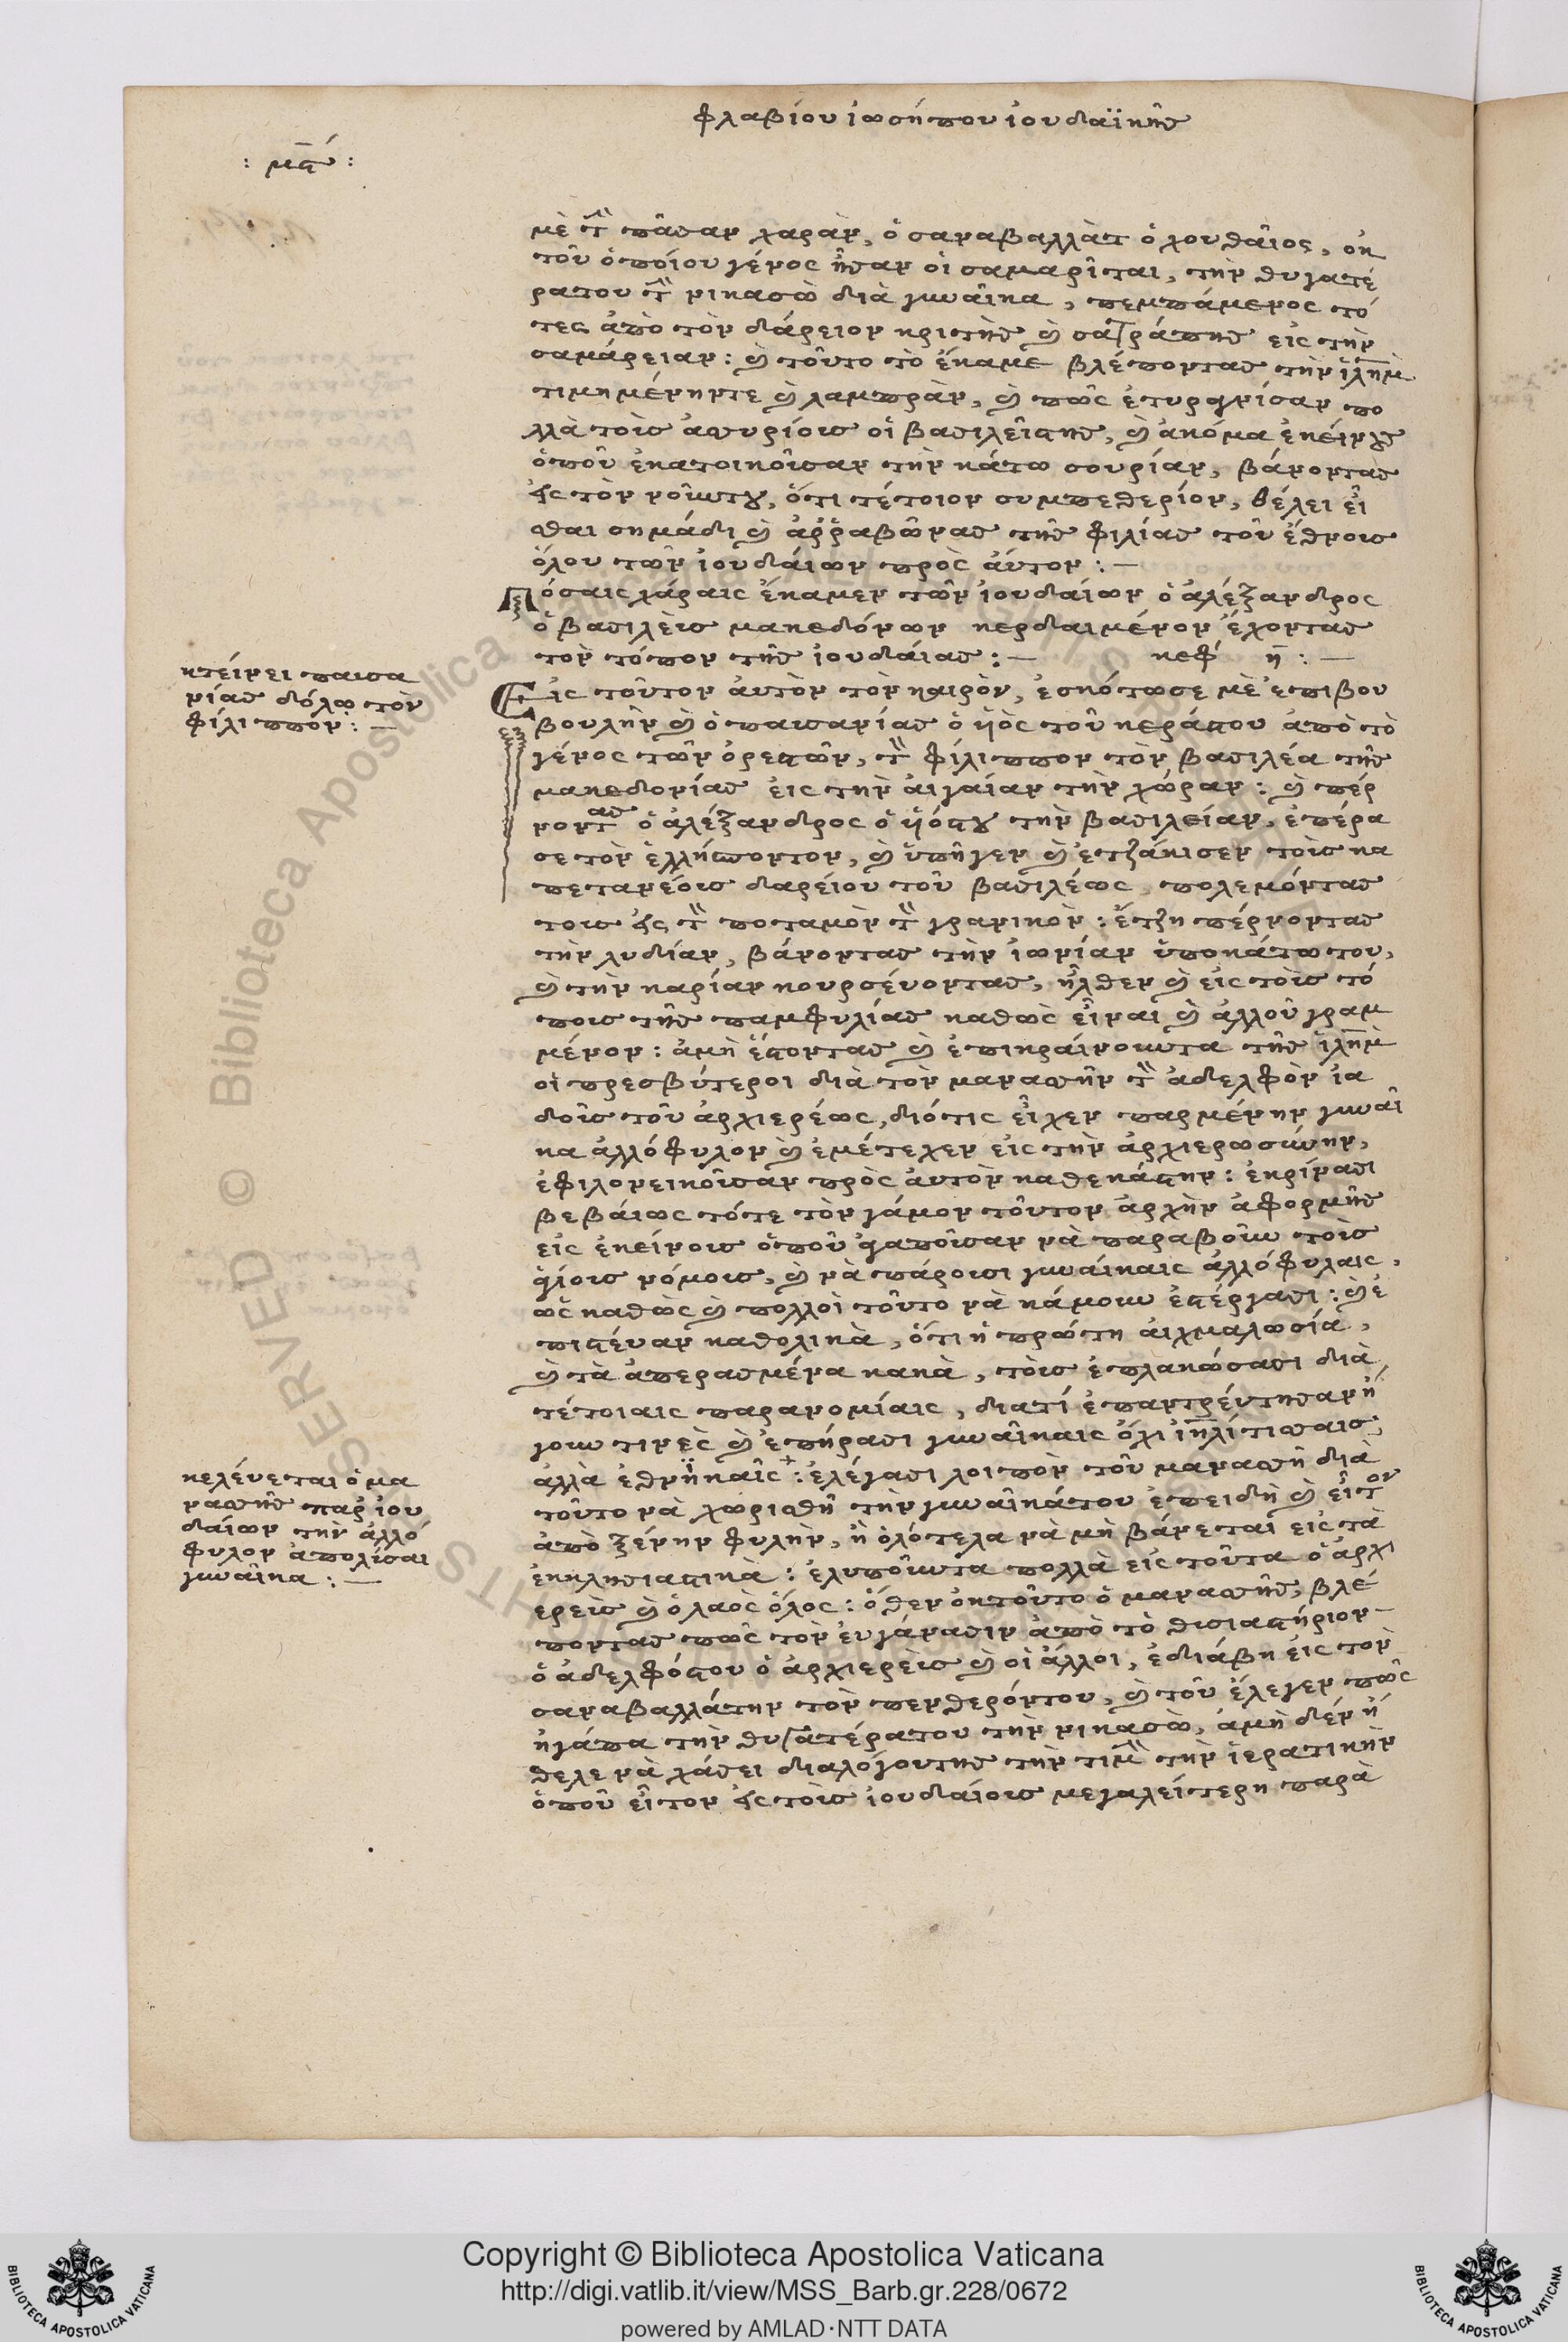 φλαβίου ἰωσήπου ἰουδαϊκῆς
μὲ τὴν πᾶσαν χαρὰν, ὁ σαναβαλλὰτ ὁ χουθαῖος, ἐκ
τοῦ ὁποίου γένος ἦσαν οἱ σαμαρῖται, τὴν θυγατέ
ρατου τὴν νικασὼ διὰ γυναῖκα, πεμπάμενος τό
τες ἀπὸ τὸν δάρειον κριτὴς καὶ σατράπης εἰς τὴν
σαμάρειαν: καὶ τοῦτο τὸ ἔκαμε βλέποντας τὴν ἱλημ
τιμημένηντε καὶ λαμπρὰν, καὶ πῶς ἐτυραννίσαν πο
λλὰ τοὺς ἀσυρίους οἱ βασιλεῖςτης, καὶ ἀκόμα ἐκείνους
ὁποῦ ἐκατοικοῦσαν τὴν κάτω συρίαν, βάνοντας
εἰς τὸν νοῦντου, ὅτι τέτοιον συμπεθερίον, θέλει εἶ
σθαι σημάδι καὶ ἀῤῥαβῶνας τῆς φιλίας τοῦ ἔθνους
ὅλου τῶν ἰουδαίων πρὸς αὐτον: —
Πόσαις χάραις ἔκαμεν τῶν ἰουδαίων ὁ ἀλέξανδρος
ὁ βασιλεὺς μακεδόνων κερδαιμένον ἔχοντας
τὸν τόπον τῆς ἰουδαίας: — κεφ η: —
κτείνει παυσα
νίας δόλω τὸν
φίλιππον: —
Εἰς τοῦτον αὐτὸν τὸν καιρὸν, ἐσκότωσε μὲ ἐπιβου
βουλὴν καὶ ὁ παυσανίας ὁ ὑιὸς τοῦ κεράστου ἀπὸ τὸ
γένος τῶν ὀρεστῶν, τὸν φίλιππον τὸν βασιλέα τῆς
μακεδονίας εἰς τὴν αἰγαίαν τὴν χώραν: καὶ πέρ
νοντας ὁ ἀλέξανδρος ὁ ὑιόςτου τὴν βασιλείαν, ἐπέρα
σε τὸν ἑλλήσποντον, καὶ ὑπῆγεν καὶ ἐτζάκισεν τοὺς κα
πετανέους δαρείου τοῦ βασιλέως, πολεμόντας
τους εἰς τὸν ποταμὸν τὸν γρανικὸν: ἔτζη πέρνοντας
τὴν λυδίαν, βάνοντας τὴν ἰωνίαν ὑποκάτωτου,
καὶ τὴν καρίαν κουρσέυοντας, ἦλθεν καὶ εἰς τοὺς τό
πους τῆς παμφυλίας καθὼς εἶναι καὶ ἀλλοῦ γραμ
μένον: ἀμὴ ἔστοντας καὶ ἐπικραίνουντα τῆς ἱλημ
οἱ πρεσβύτεροι διὰ τὸν μανασῆν τὸν ἀδελφὸν ἰα
δοῦς τοῦ ἀρχιερέως, διότις εἶχεν παρμένην γυναῖ
κα ἀλλόφυλον καὶ ἐμέτεχεν εἰς τὴν ἀρχιερωσύνην,
ἐφιλονεικοῦσαν πρὸς αὐτὸν καθεκάστην: ἐκρίνασι
βεβαίως τότε τὸν γάμον τοῦτον ἀρχὴν ἀφορμῆς
εἰς ἐκείνους ὁποῦ ἀγαποῦσαν νὰ παραβοῦν τοὺς
ἁγίους νόμους, καὶ νὰ πάρουσι γυναίκαις ἀλλόφυλαις,
ὡς καθὼς καὶ πολλοὶ τοῦτο νὰ κάμουν ἐστέργασι: καὶ ἐ
πιστέυαν καθολικὰ, ὅτι ἡ πρώτη αἰχμαλωσία,
καὶ τὰ ἀπερασμένα κακὰ, τοὺς ἐπλακώσασι διὰ
τέτοιαις παρανομίαις, διατί ἐπαντρέυτησαν ἤ
γουν τινὲς καὶ ἐπήρασι γυναῖκαις ὄχι ἰηλίτισσαις,
ἀλλὰ ἐθνηκαῖς: ἐλέγασι λοιπὸν τοῦ μανασῆ διὰ
κελέυεται ὁ μα
νασῆς παρ ἰου
δαίων τὴν ἀλλό
φυλον ἀπολύσαι
γυναῖκα: —
τοῦτο νὰ χωρισθῆ τὴν γυναῖκάτου ἐπειδὴ καὶ εἶτον
ἀπὸ ξένην φυλὴν, ἢ ὁλότελα νὰ μὴ βάνεται εἰς τὰ
ἐκκλησιαστικὰ: ἐλυποῦντα πολλὰ εἰς τοῦτα ὁ ἀρχι
ερεὺς καὶ ὁ λαὸς ὅλος: ὅθεν ἐκτοῦτο ὁ μανασῆς, βλέ
ποντας πῶς τὸν ἐυγάνασιν ἀπὸ τὸ θυσιαστήριον
ὁ ἀδελφόςτου ὁ ἀρχιερεὺς καὶ οἱ ἄλλοι, ἐδιάβη εἰς τὸν
σαναβαλλάτην τὸν πενθερόντου, καὶ τοῦ ἔλεγεν πῶς
ἠγάπα τὴν θυγατέρατου τὴν νικασὼ, ἀμὴ δέν ἤ
θελε νὰ χάσει διαλόγουτης τὴν τιμὴν τὴν ἱερατικὴν
ὁποῦ εἶτον εἰς τοὺς ἰουδαίους μεγαλείτερη παρὰ
© Biblioteca Apostolica Vaticana
Copyright © Biblioteca Apostolica Vaticana
http://digi.vatlib.it/view/MSS_Barb.gr.228/0672
powered by AMLAD·NTT DATA
BIBLIOTECA APOSTOLICA VATICANA
BIBLIOTECA APOSTOLICA VATICANA